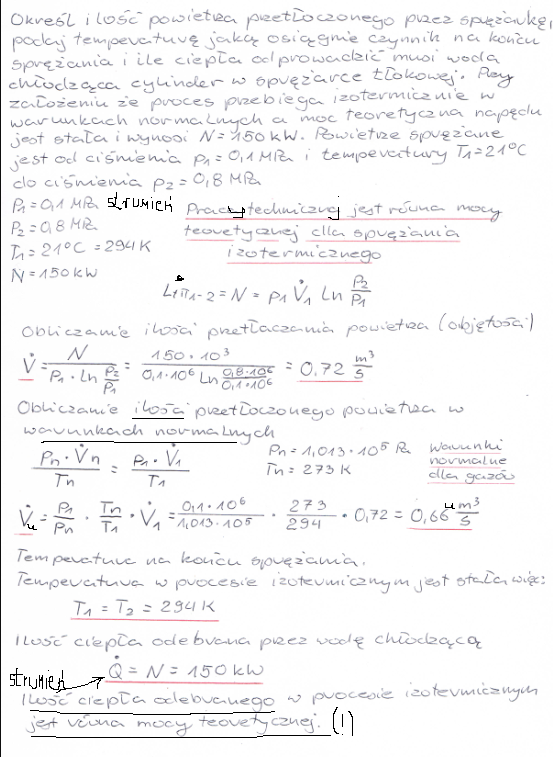 Określ i ilość powietrza przetłoczonego przez sprężarkę,
podaj temperaturę jaką osiągnie czynnik na końcu
sprężania i ile ciepła odprowadzić musi woda
chłodząca cylinder w sprężarce tłokowej. Przy
założeniu że proces przebiega izotermicznie w
warunkach normalnych a moc teoretyczna napędu
jest stała i wynosi N = 150 kW. Powietrze sprężane
jest od ciśnienia p₁ = 0,1 MPa i temperatury T₁ = 21°C
do ciśnienia p₂ = 0,8 MPa
P₁ = 0,1 MPa
P₂ = 0,8 MPa
T₁ = 21°C = 294 K
N = 150 kW
strumień
Pracy technicznej jest równa mocy
teoretycznej dla sprężania
izotermicznego
Lt i T1-2 = N = P₁ V̇₁ Ln P₂/P₁
Obliczanie ilości przetłaczania powietrza (objętości)
V̇ = N / (P₁ · Ln P₂/P₁) = 150 · 10³ / (0,1 · 10⁶ Ln 0,8·10⁶/0,1·10⁶) = 0,72 m³/s
Obliczanie ilości przetłoczonego powietrza w
warunkach normalnych
Pn · V̇n / Tn = P₁ · V̇₁ / T₁
Pn = 1,013 · 10⁵ Pa
Tn = 273 K
warunki
normalne
dla gazów
V̇u = P₁/Pn · Tn/T₁ · V̇₁ = 0,1 · 10⁶ / 1,013 · 10⁵ · 273/294 · 0,72 = 0,66 um³/s
Temperatura na końcu sprężania.
Temperatura w procesie izotermicznym jest stała więc:
T₁ = T₂ = 294 K
Ilość ciepła odebrana przez wodę chłodzącą
strumień
Q̇ = N = 150 kW
Ilość ciepła odebranego w procesie izotermicznym
jest równa mocy teoretycznej. (!)